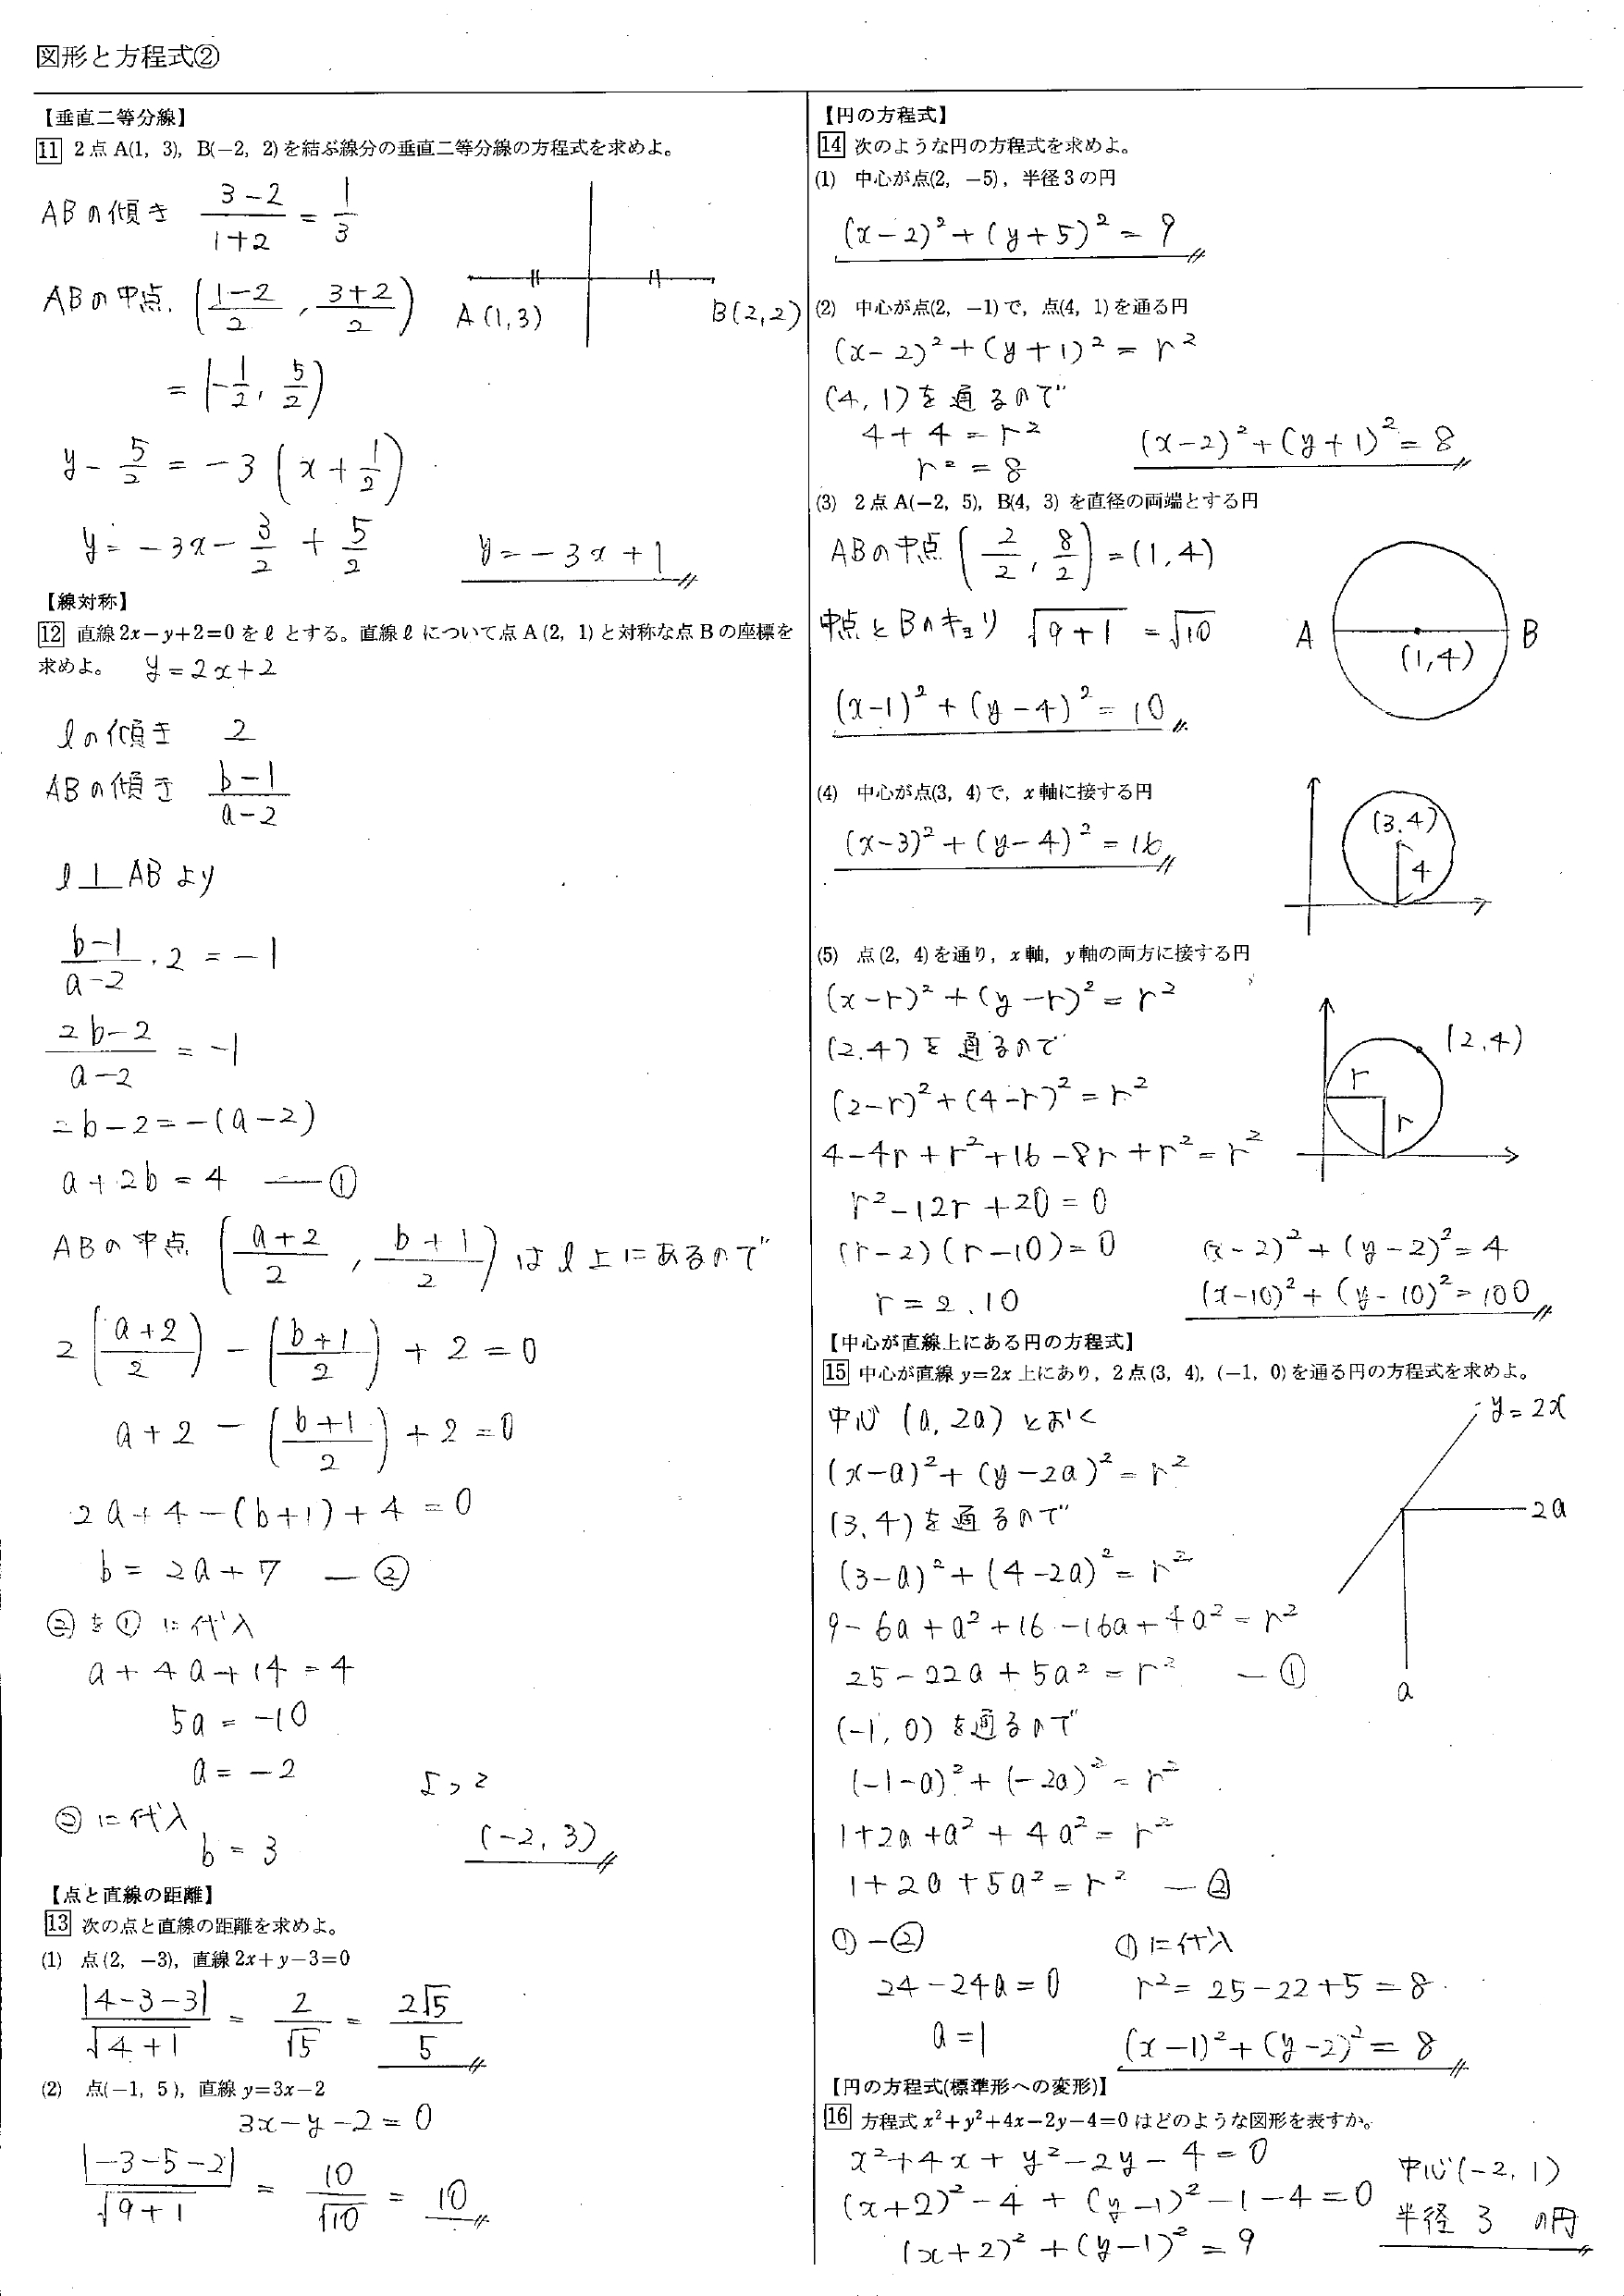 図形と方程式②
【垂直二等分線】
11 2点 A(1, 3), B(−2, 2)を結ぶ線分の垂直二等分線の方程式を求めよ。
ABの傾き (3−2)/(1+2) = 1/3
ABの中点. ((1−2)/2, (3+2)/2)
A(1,3) B(2,2)
= (−1/2, 5/2)
y − 5/2 = −3(x + 1/2)
y = −3x − 3/2 + 5/2
y = −3x + 1
【線対称】
12 直線 2x−y+2=0 を ℓ とする。直線 ℓ について点 A(2, 1) と対称な点 B の座標を
求めよ。 y = 2x+2
ℓの傾き 2
ABの傾き (b−1)/(a−2)
ℓ⊥AB より
(b−1)/(a−2) ・ 2 = −1
(2b−2)/(a−2) = −1
2b−2 = −(a−2)
a+2b = 4 — ①
ABの中点 ((a+2)/2, (b+1)/2) は ℓ上にあるので
2((a+2)/2) − ((b+1)/2) + 2 = 0
a+2 − ((b+1)/2) + 2 = 0
2a+4−(b+1)+4 = 0
b = 2a+7 — ②
②を①に代入
a+4a+14 = 4
5a = −10
a = −2
よって
②に代入
b = 3
(−2, 3)
【点と直線の距離】
13 次の点と直線の距離を求めよ。
(1) 点(2, −3), 直線 2x+y−3=0
|4−3−3|/√(4+1) = 2/√5 = 2√5/5
(2) 点(−1, 5), 直線 y=3x−2
3x−y−2 = 0
|−3−5−2|/√(9+1) = 10/√10 = 10
【円の方程式】
14 次のような円の方程式を求めよ。
(1) 中心が点(2, −5), 半径3の円
(x−2)²+(y+5)² = 9
(2) 中心が点(2, −1)で, 点(4, 1)を通る円
(x−2)²+(y+1)² = r²
(4, 1)を通るので
4+4 = r²
r² = 8
(x−2)²+(y+1)² = 8
(3) 2点 A(−2, 5), B(4, 3) を直径の両端とする円
ABの中点 (2/2, 8/2) = (1, 4)
中点とBのキョリ √(9+1) = √10
A (1,4) B
(x−1)²+(y−4)² = 10
(4) 中心が点(3, 4)で, x軸に接する円
(x−3)²+(y−4)² = 16
(3.4)
4
(5) 点(2, 4)を通り, x軸, y軸の両方に接する円
(x−r)²+(y−r)² = r²
(2.4)を通るので
(2.4)
r
r
(2−r)²+(4−r)² = r²
4−4r+r²+16−8r+r² = r²
r²−12r+20 = 0
(r−2)(r−10) = 0
r = 2.10
(x−2)²+(y−2)² = 4
(x−10)²+(y−10)² = 100
【中心が直線上にある円の方程式】
15 中心が直線 y=2x 上にあり, 2点(3, 4), (−1, 0)を通る円の方程式を求めよ。
中心 (a, 2a) とおく
y = 2x
2a
a
(x−a)²+(y−2a)² = r²
(3, 4)を通るので
(3−a)²+(4−2a)² = r²
9−6a+a²+16−16a+4a² = r²
25−22a+5a² = r² — ①
(−1, 0)を通るので
(−1−a)²+(−2a)² = r²
1+2a+a²+4a² = r²
1+2a+5a² = r² — ②
①−②
24−24a = 0
a = 1
①に代入
r² = 25−22+5 = 8
(x−1)²+(y−2)² = 8
【円の方程式(標準形への変形)】
16 方程式 x²+y²+4x−2y−4=0 はどのような図形を表すか。
x²+4x+y²−2y−4 = 0
(x+2)²−4+(y−1)²−1−4 = 0
(x+2)²+(y−1)² = 9
中心(−2, 1)
半径 3 の円